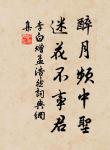 醉月頻中聖
迷花不事君
李白贈孟浩然詞典網
集